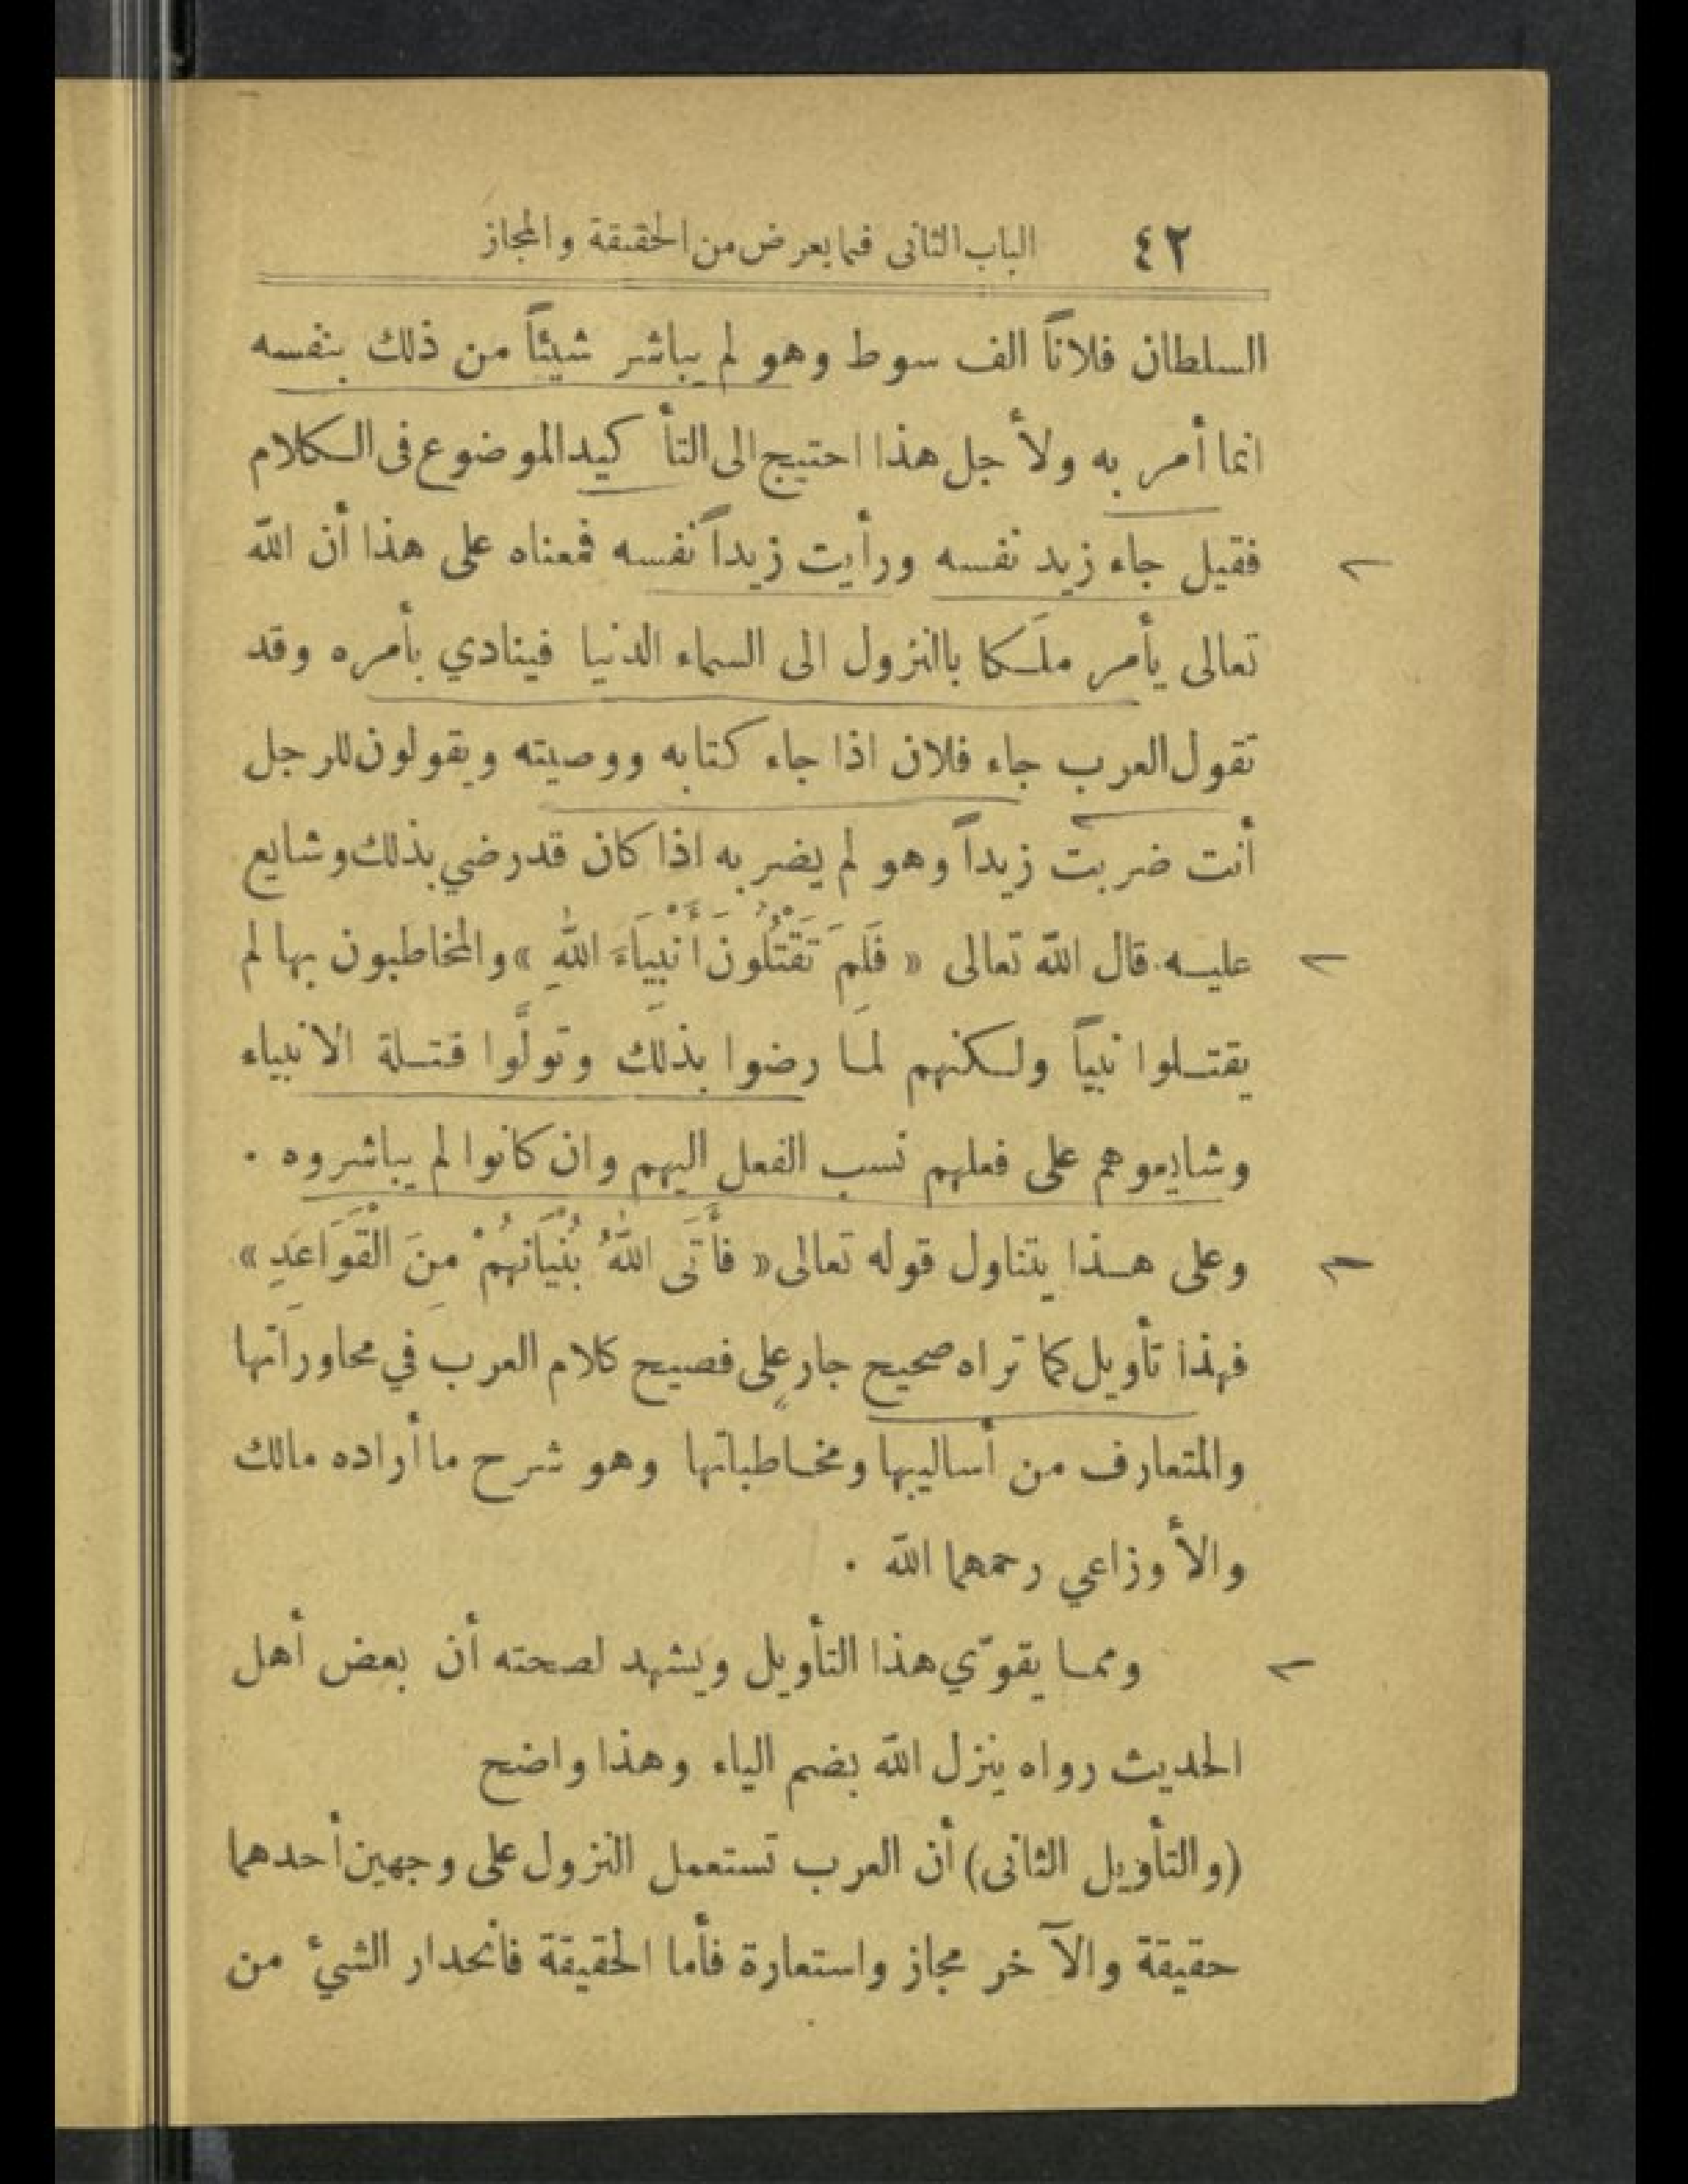 ٤٢ الباب الثانى فيما يعرض من الحقيقة والمجاز
السلطان فلاناً الف سوط وهو لم يباشر شيئاً من ذلك بنفسه
انما أمر به ولأجل هذا احتيج الى التأكيد الموضوع فى الكلام
فقيل جاء زيد نفسه ورأيت زيداً نفسه فمعناه على هذا أن الله
تعالى يأمر ملَكا بالنزول الى السماء الدنيا فينادي بأمره وقد
تقول العرب جاء فلان اذا جاء كتابه ووصيته ويقولون للرجل
أنت ضربت زيداً وهو لم يضربه اذا كان قد رضي بذلك وشايع
عليه. قال الله تعالى « فَلِمَ تَقْتُلُونَ أَنْبِيَاءَ اللهِ » والمخاطبون بها لم
يقتلوا نبياً ولكنهم لما رضوا بذلك وتولَّوا قتلة الانبياء
وشايعوهم على فعلهم نسب الفعل اليهم وان كانوا لم يباشروه .
وعلى هذا يتناول قوله تعالى « فأَتَى اللهُ بُنْيَانَهُمْ مِنَ الْقَوَاعَدِ »
فهذا تأويل كما تراه صحيح جارٍ على فصيح كلام العرب في محاوراتها
والمتعارف من أساليبها ومخاطباتها وهو شرح ما أراده مالك
والأوزاعي رحمهما الله .
ومما يقوّي هذا التأويل ويشهد لصحته أن بعض أهل
الحديث رواه ينزل الله بضم الياء وهذا واضح
(والتأويل الثانى) أن العرب تستعمل النزول على وجهين أحدهما
حقيقة والآخر مجاز واستعارة فأما الحقيقة فانحدار الشيء من